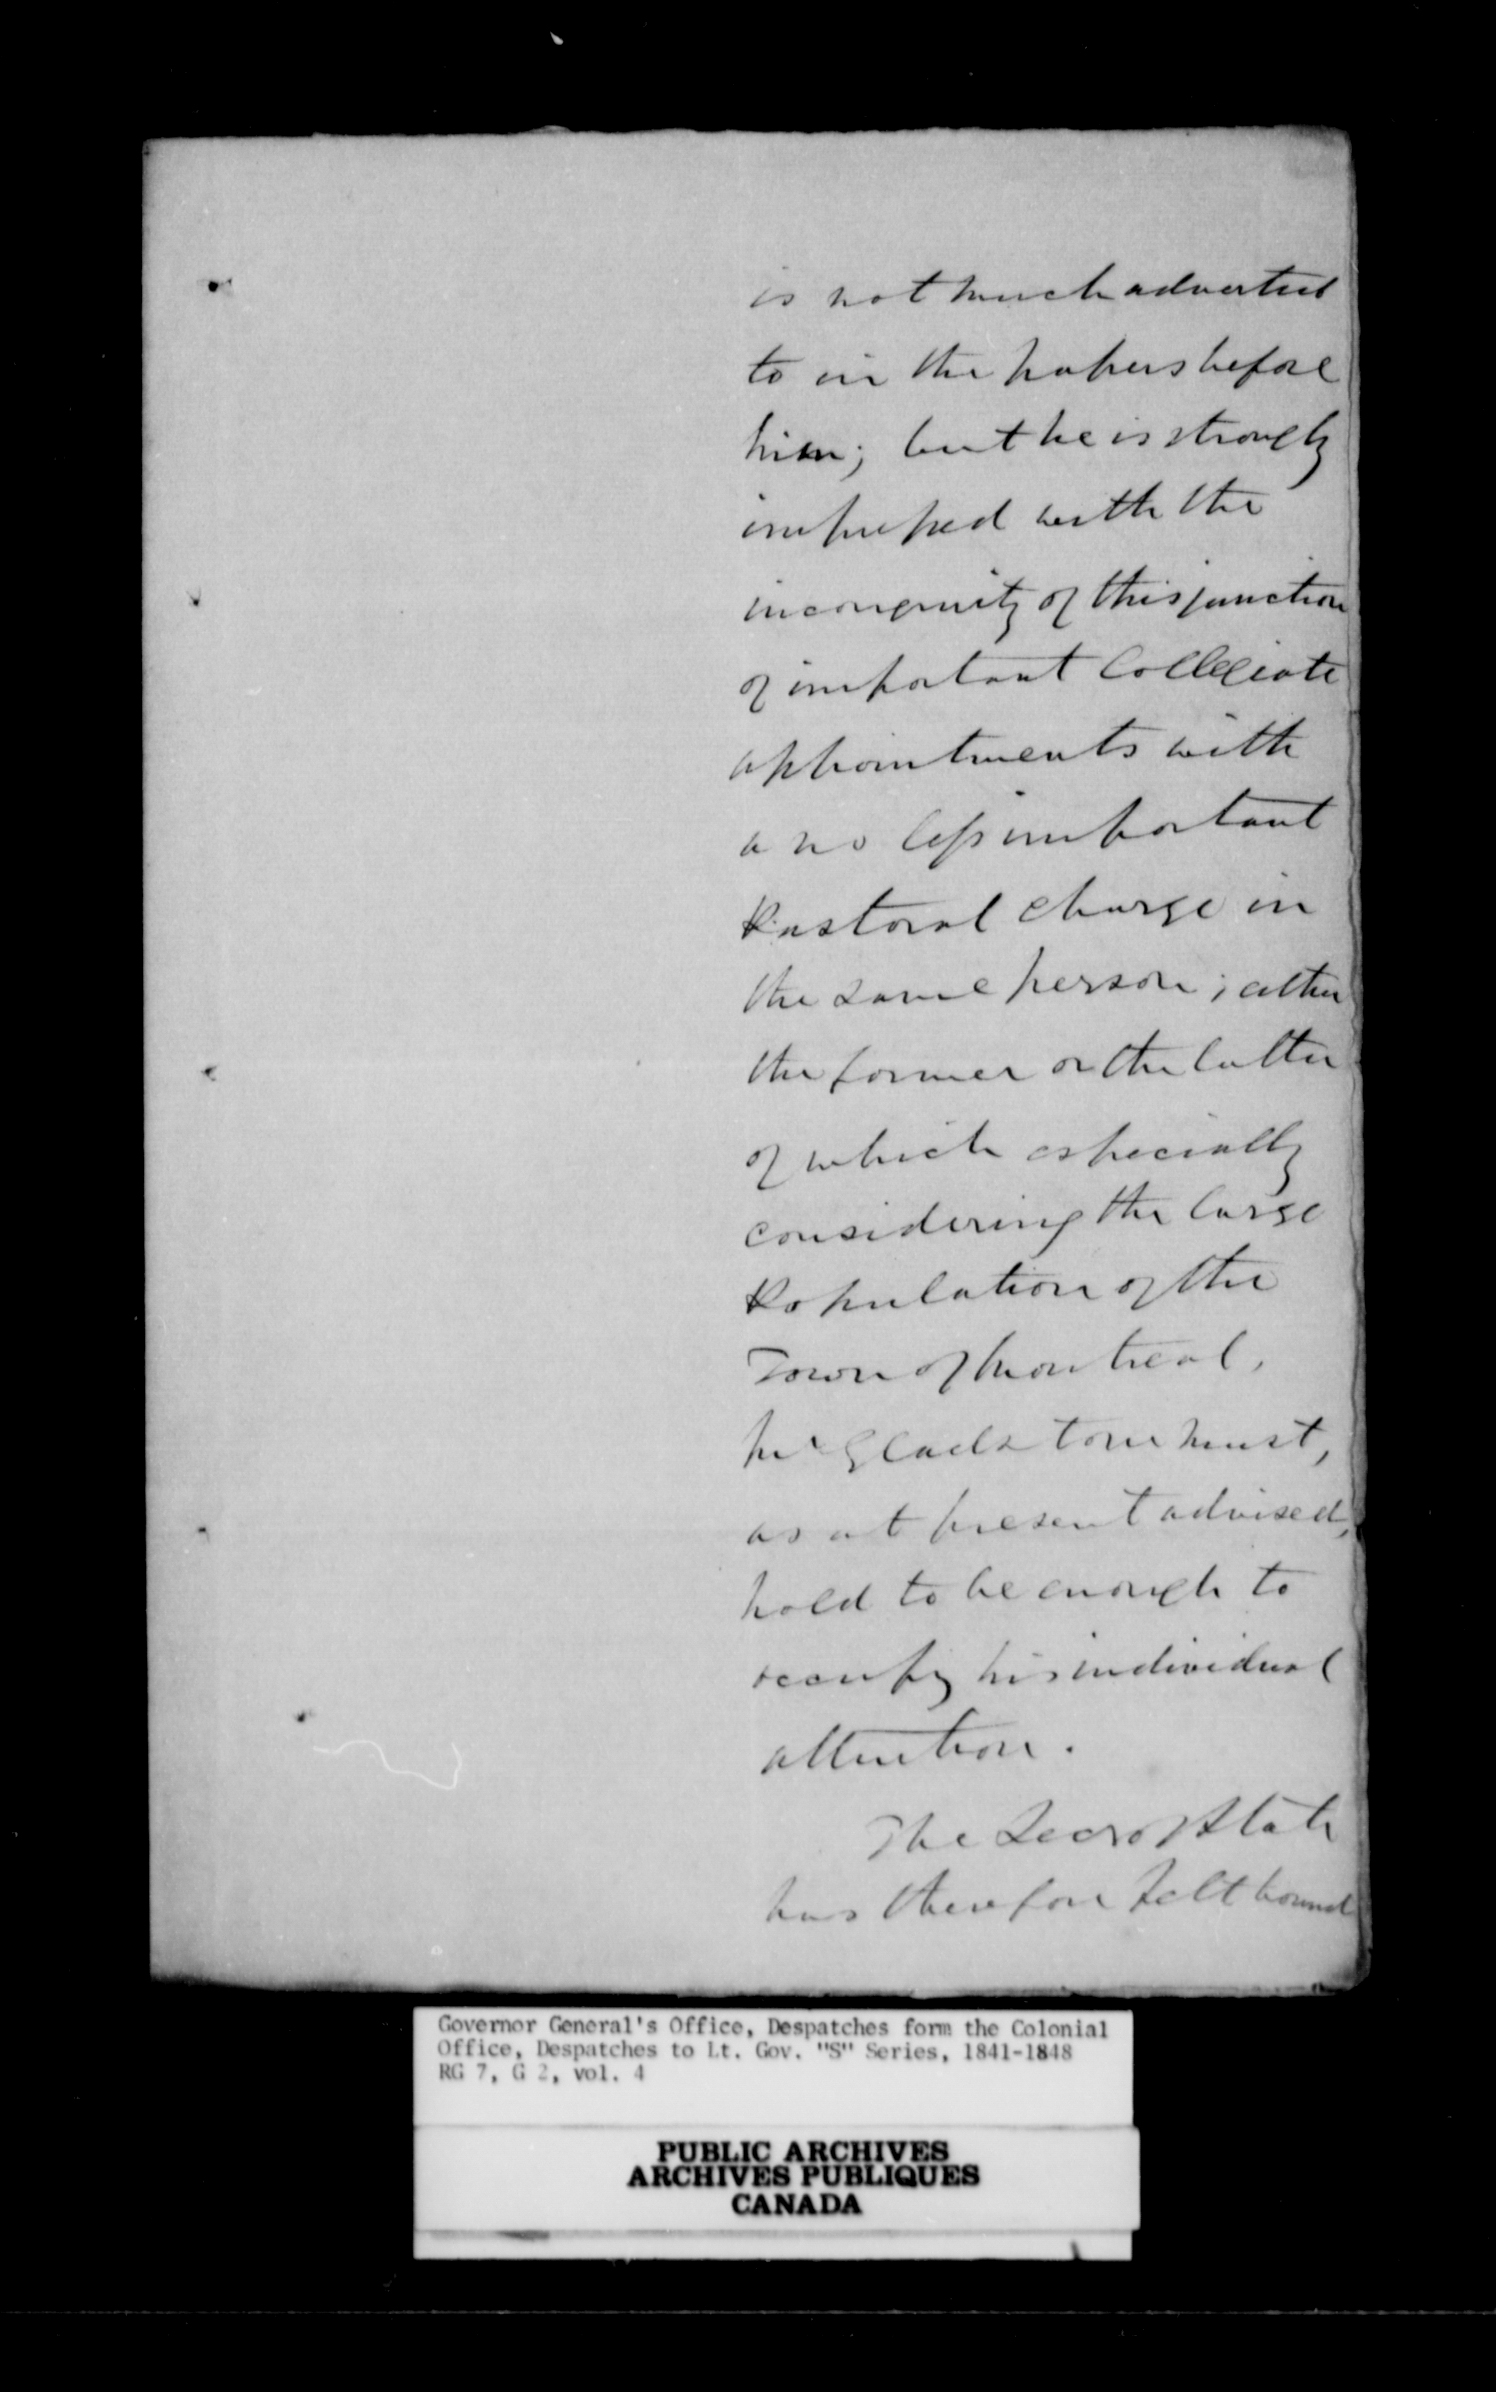 is not much adverted
to in the papers before
him; but he is strongly
impressed with the
incongruity of this junction
of important Collegiate
appointments with
a no less important
Pastoral charge in
the same person; either
the former or the latter
of which especially
considering the large
Population of the
Town of Montreal,
Mr Gladstone must,
as at present advised,
hold to be enough to
occupy his individual
attention.
The Secy of State
has therefore felt bound
Governor General's Office, Despatches form the Colonial
Office, Despatches to Lt. Gov. "S" Series, 1841-1848
RG 7, G 2, vol. 4
PUBLIC ARCHIVES
ARCHIVES PUBLIQUES
CANADA